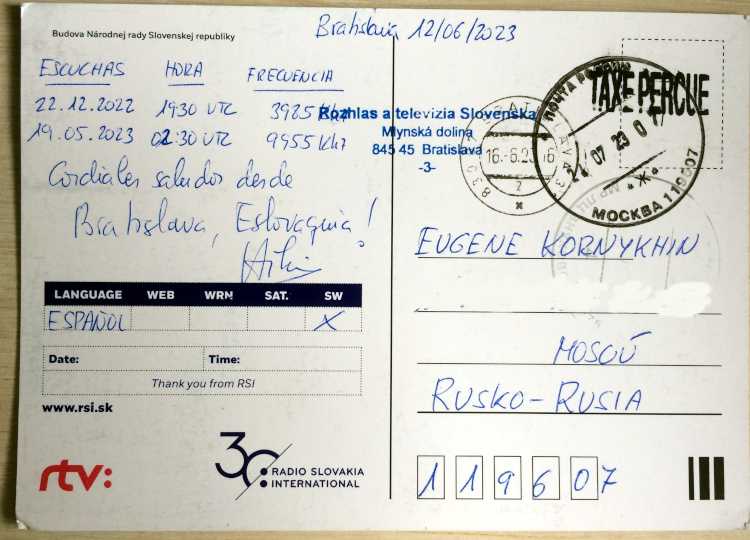 Budova Národnej rady Slovenskej republiky
Bratislava 12/06/2023
ESCUCHAS HORA FRECUENCIA
22.12.2022 1930 UTC 3925 KHz
19.05.2023 02:30 UTC 9955 KHz
Cordiales saludos desde
Bratislava, Eslovaquia!
LANGUAGE WEB WRN SAT. SW
ESPAÑOL X
Date: Time:
Thank you from RSI
www.rsi.sk
rtv:
30 RADIO SLOVAKIA
INTERNATIONAL
Rozhlas a televízia Slovenska
Mlynská dolina
845 45 Bratislava
-3-
16.-6.23
z
ПОЧТА РОССИИ
07 23
МОСКВА
TAXE PERCUE
EUGENE KORNYKHIN
MOSCÚ
RUSKO-RUSIA
119607